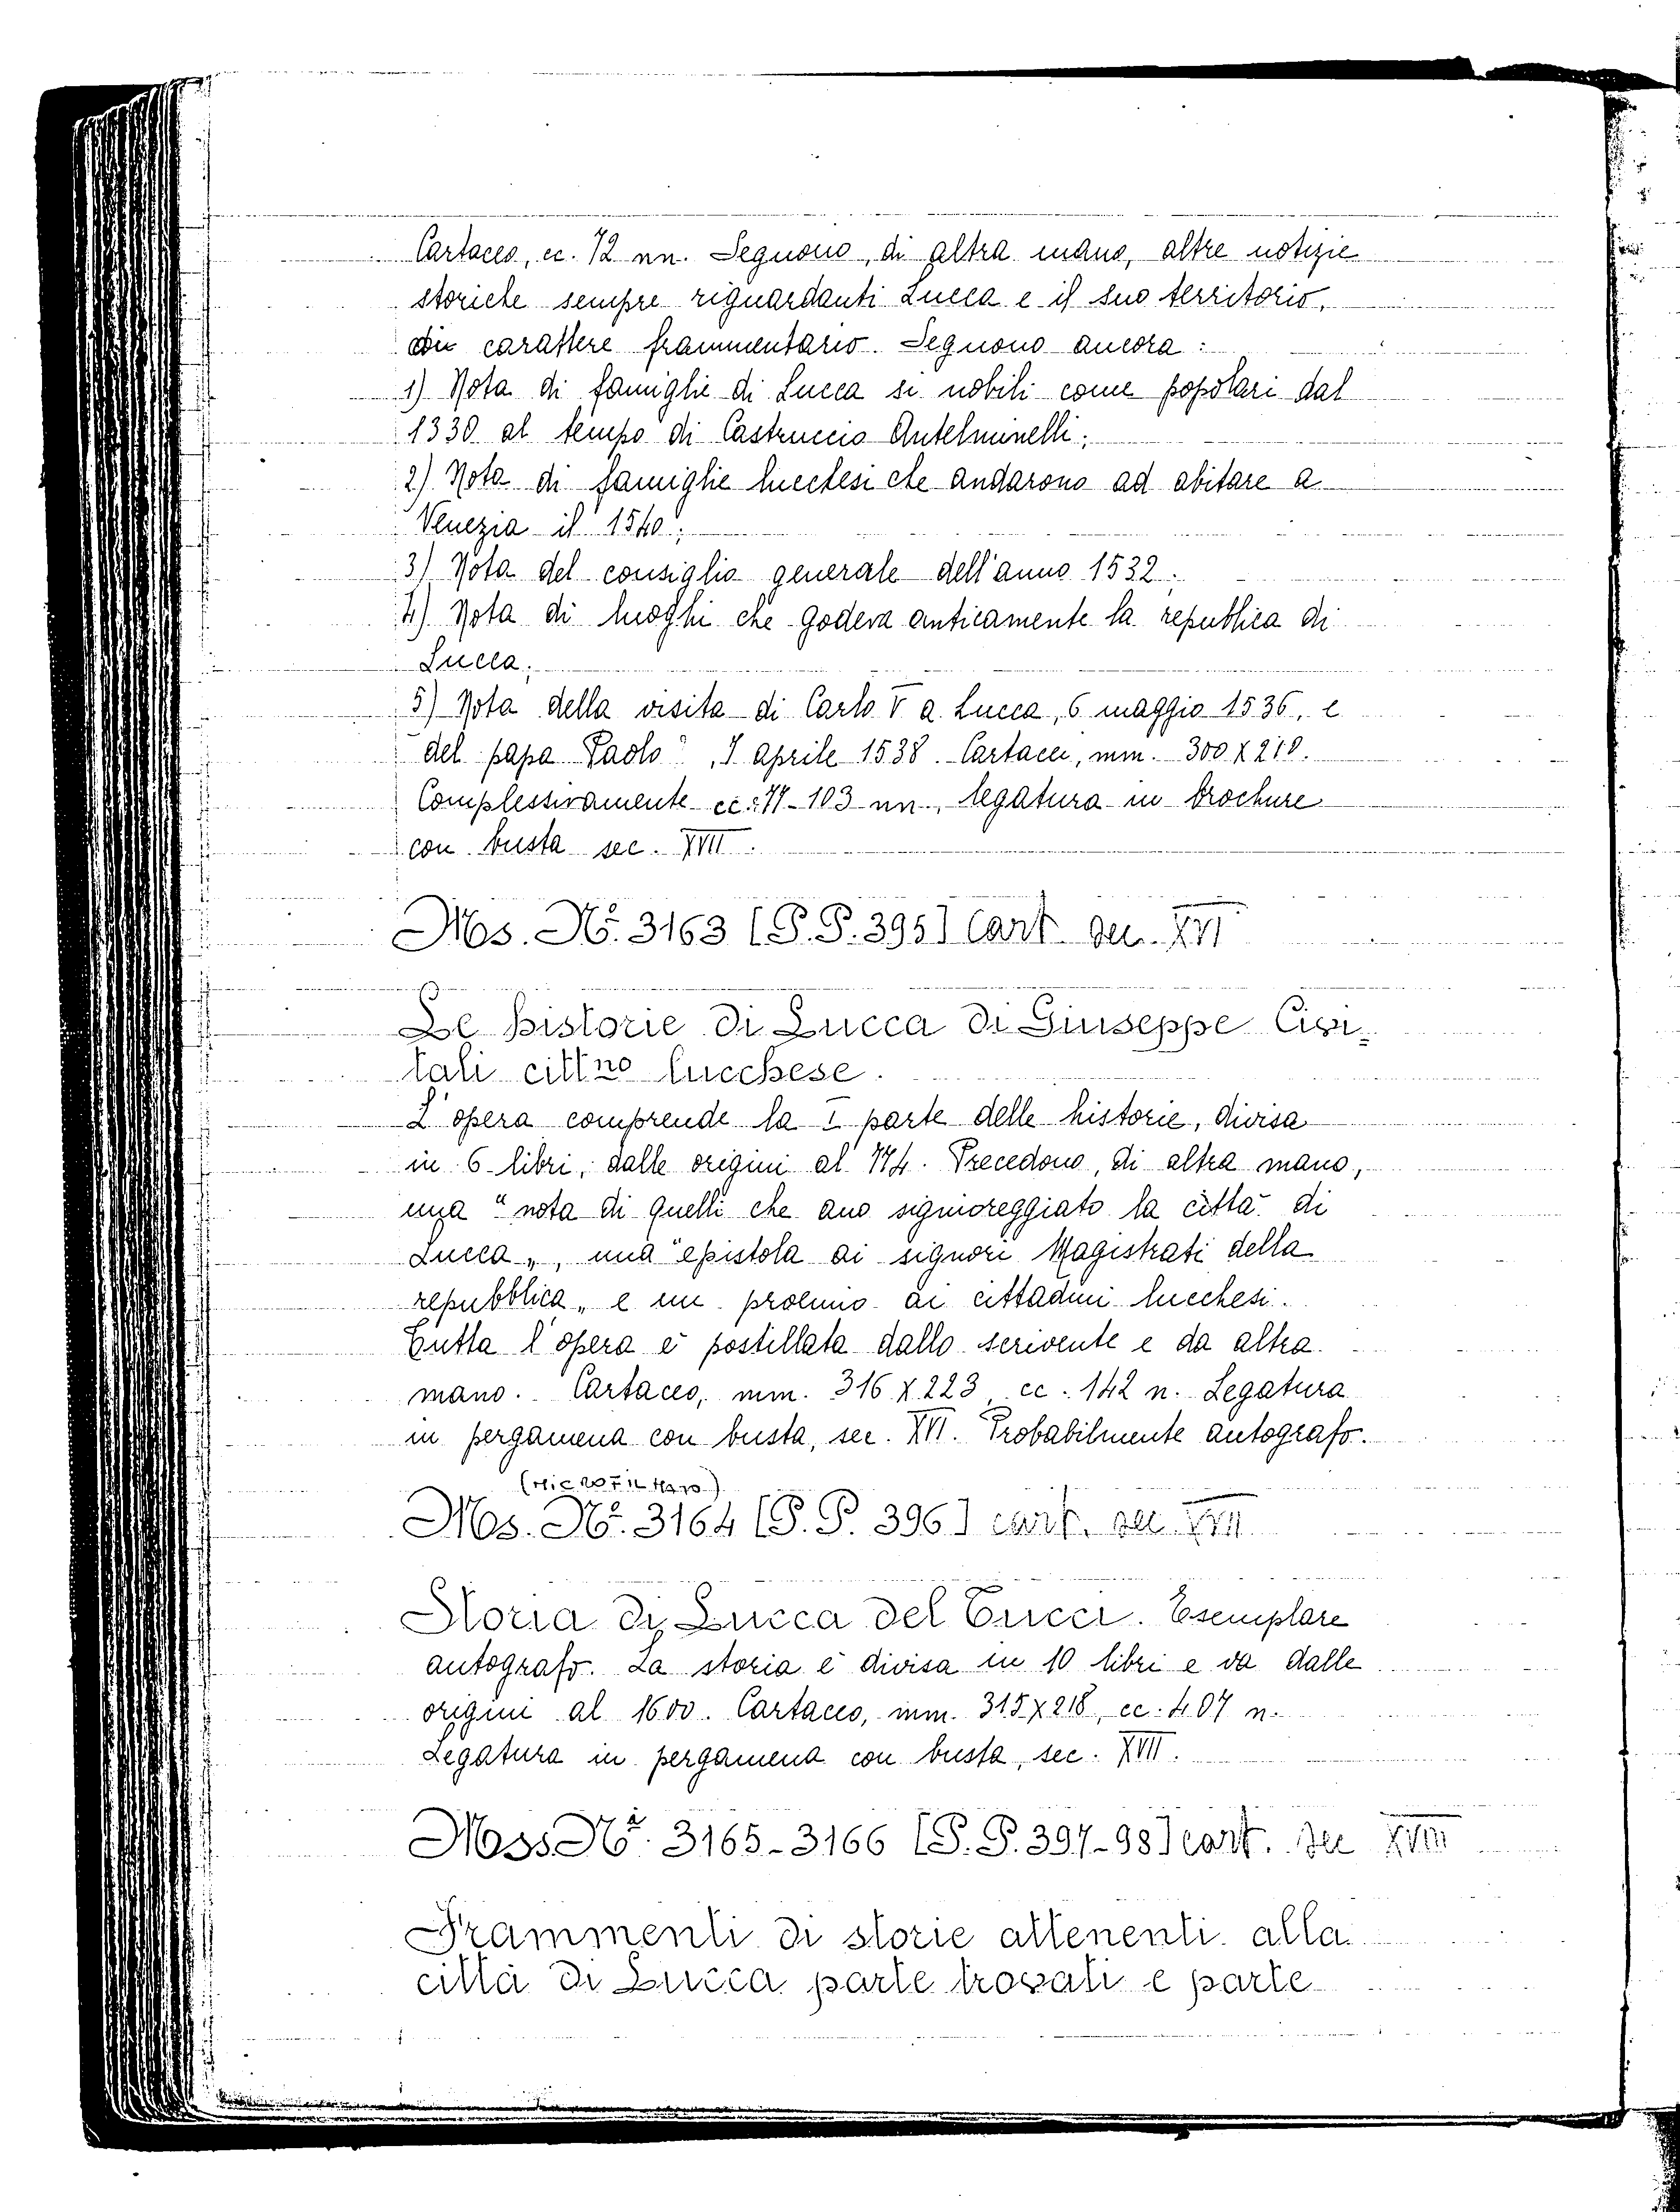 Cartaceo, cc. 72 nn. Seguono, di altra mano, altre notizie
storiche sempre riguardanti Lucca e il suo territorio,
di carattere frammentario. Seguono ancora:
1) Nota di famiglie di Lucca si nobili come popolari dal
1330 al tempo di Castruccio Antelminelli;
2) Nota di famiglie lucchesi che andarono ad abitare a
Venezia il 1540;
3) Nota del consiglio generale dell'anno 1532;
4) Nota di luoghi che godeva anticamente la republica di
Lucca;
5) Nota della visita di Carlo V a Lucca, 6 maggio 1536, e
del papa Paolo , aprile 1538. Cartacei, mm. 300 x 210.
Complessivamente cc. 103 nn., legatura in brochure
con busta sec. XVII.
Ms. No. 3163 [P.P. 395] Cart. sec. XVI
Le historie di Lucca di Giuseppe Civi-
tali cittno lucchese.
L'opera comprende la I parte delle historie, divisa
in 6 libri, dalle origini al 774. Precedono, di altra mano,
una "nota di quelli che ano signoreggiato la città di
Lucca„, una "epistola ai signori Magistrati della
repubblica„ e un proemio ai cittadini lucchesi.
Tutta l'opera è postillata dallo scrivente e da altra
mano. Cartaceo, mm. 316 x 223, cc. 142 n. Legatura
in pergamena con busta, sec. XVI. Probabilmente autografo.
Ms. No. 3164 [P.P. 396] cart. sec. XVII
Storia di Lucca del Tucci. Esemplare
autografo. La storia è divisa in 10 libri e va dalle
origini al 1600. Cartaceo, mm. 315 x 218, cc. 407 n.
Legatura in pergamena con busta, sec. XVII.
Mss. No. 3165-3166 [P.P. 397-98] cart. sec XVIII
Frammenti di storie attenenti alla
città di Lucca parte trovati e parte